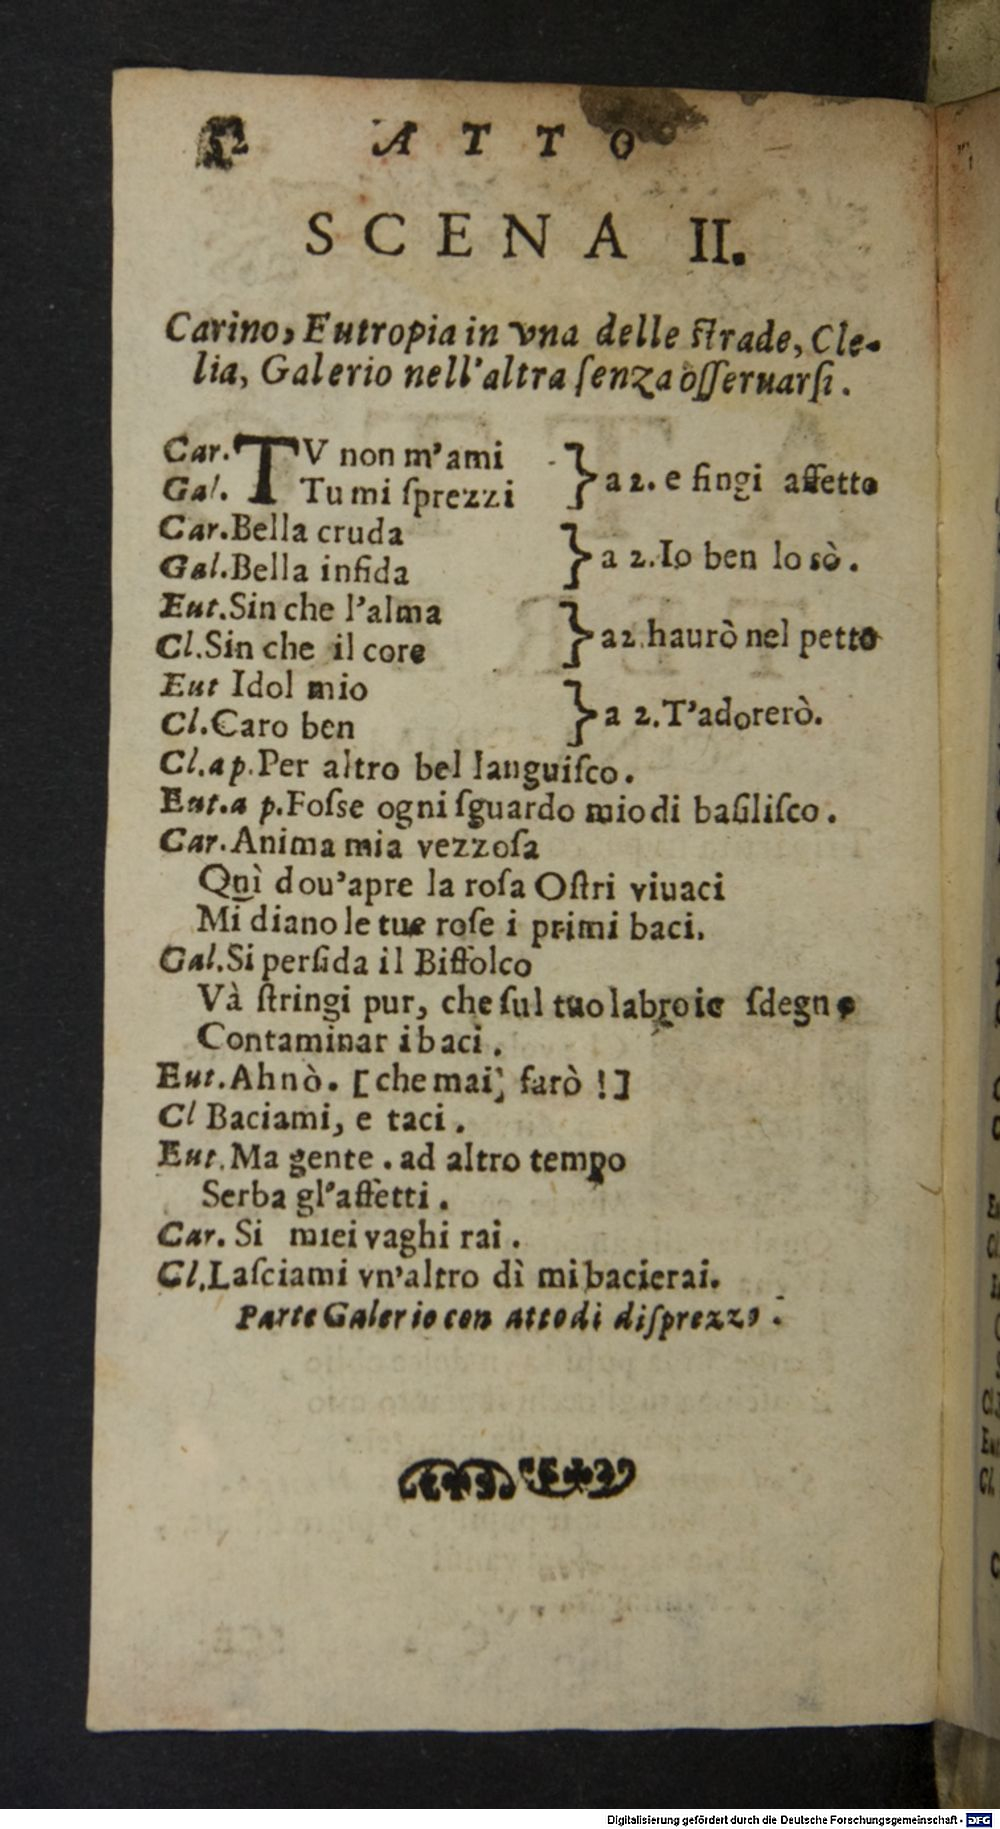 52 ATTO
SCENA II.
Carino, Eutropia in vna delle ſtrade, Cle-
lia, Galerio nell'altra ſenza oſſeruarſi.
Car. TV non m'ami
Gal. Tu mi ſprezzi } a 2. e fingi affetto
Car. Bella cruda
Gal. Bella infida } a 2. Io ben lo sò.
Eut. Sin che l'alma
Cl. Sin che il core } a 2. haurò nel petto
Eut Idol mio
Cl. Caro ben } a 2. T'adorerò.
Cl. a p. Per altro bel languiſco.
Eut. a p. Foſſe ogni ſguardo mio di baſiliſco.
Car. Anima mia vezzoſa
Quì dou'apre la roſa Oſtri viuaci
Mi diano le tue roſe i primi baci.
Gal. Si perfida il Biffolco
Và ſtringi pur, che ſul tuo labro io ſdegno
Contaminar i baci.
Eut. Ah nò. [che mai, farò !]
Cl Baciami, e taci.
Eut. Ma gente. ad altro tempo
Serba gl'affetti.
Car. Si miei vaghi rai.
Cl. Laſciami vn'altro dì mi bacierai.
Parte Galerio con atto di diſprezzo.
Digitalisierung gefördert durch die Deutsche Forschungsgemeinschaft - DFG